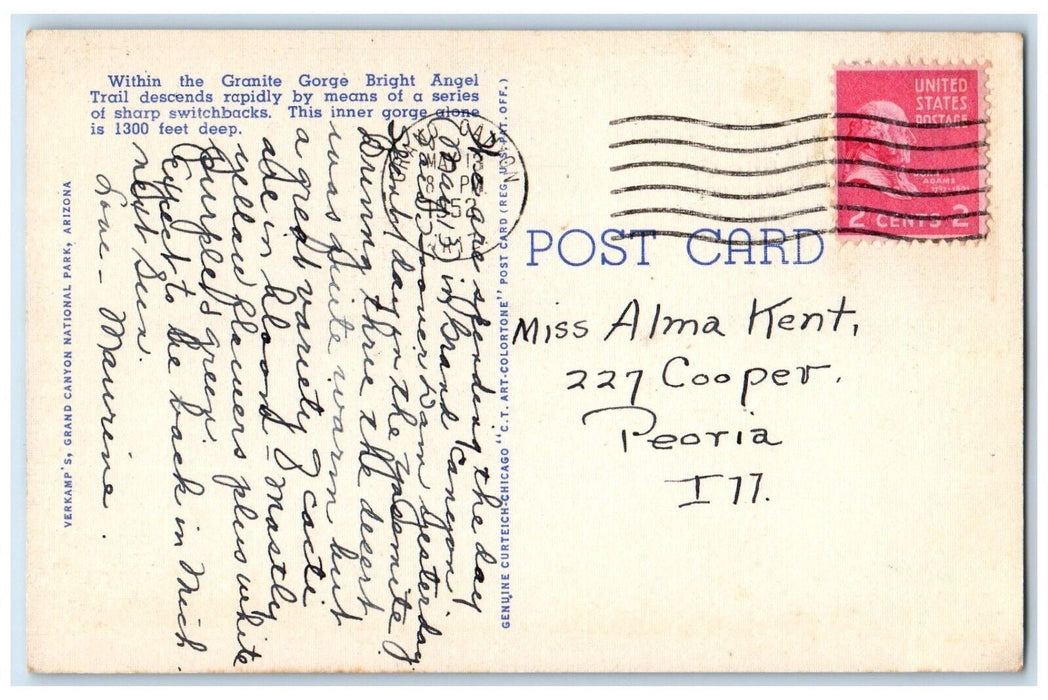 Within the Granite Gorge Bright Angel
Trail descends rapidly by means of a series
of sharp switchbacks. This inner gorge alone
is 1300 feet deep.
We are spending the day
in Grand Canyon.
Saw Hoover Dam yesterday
Spent day in the Yosemite.
Driving thru the desert
was quite warm but
a great variety of cacti
are in bloom - Mostly
yellow flowers plus white
purples & green.
Expect to be back in Mich.
next Sun.
Love - Maurine.
VERKAMP'S, GRAND CANYON NATIONAL PARK, ARIZONA
GENUINE CURTEICH-CHICAGO "C.T. ART-COLORTONE" POST CARD (REG. U.S. PAT. OFF.)
POST CARD
UNITED
STATES
POSTAGE
ADAMS
2 CENTS 2
Miss Alma Kent,
227 Cooper.
Peoria
Ill.